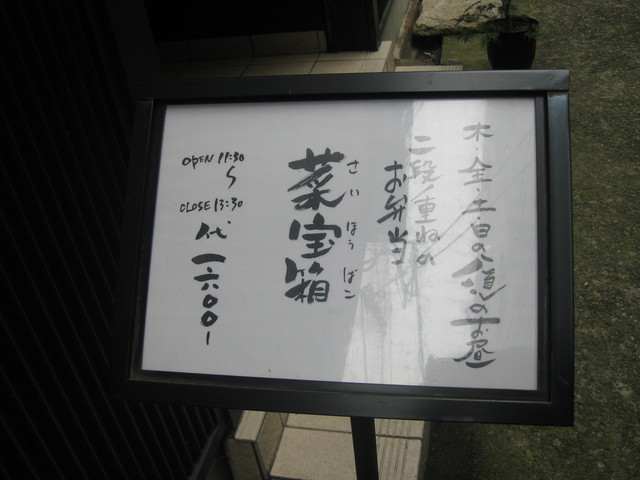 木・金・土・日の八道のお昼
二段重ねの
お弁当
さいほうばこ
菜宝箱
OPEN 11:30
〜
CLOSE 13:30
代 一六〇〇ー